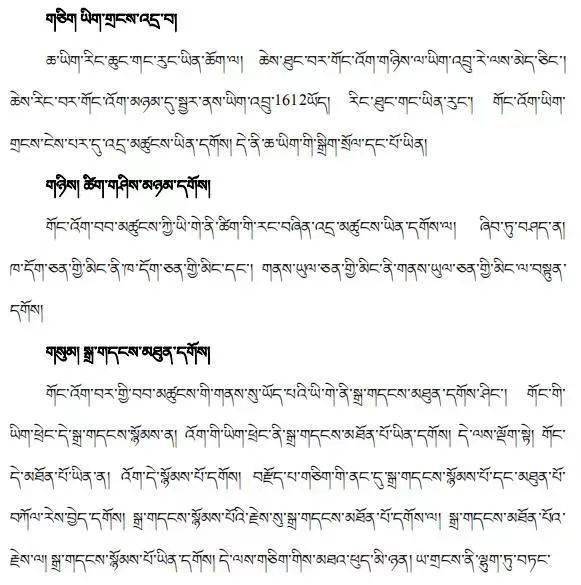 གཅིག ཡིག་གྲངས་འདྲ་བ།
ཆ་ཡིག་རིང་ཆུང་གང་རུང་ཡིན་ཆོག་ལ། ཆེས་ཐུང་བར་གོང་འོག་གཉིས་ལ་ཡིག་འབྲུ་རེ་ལས་མེད་ཅིང་།
ཆེས་རིང་བར་གོང་འོག་མཉམ་དུ་སྦྱར་ནས་ཡིག་འབྲུ་1612ཡོད། རིང་ཐུང་གང་ཡིན་རུང་། གོང་འོག་ཡིག་
གྲངས་ངེས་པར་དུ་འདྲ་མཚུངས་ཡིན་དགོས། དེ་ནི་ཆ་ཡིག་གི་སྒྲིག་སྲོལ་དང་པོ་ཡིན།
གཉིས། ཚིག་གཤིས་མཉམ་དགོས།
གོང་འོག་བབ་མཚུངས་ཀྱི་ཡི་གེ་ནི་ཚིག་གི་རང་བཞིན་འདྲ་མཚུངས་ཡིན་དགོས་ལ། ཞིབ་ཏུ་བཤད་ན།
ཁ་དོག་ཅན་གྱི་མིང་ནི་ཁ་དོག་ཅན་གྱི་མིང་དང་། གནས་ཡུལ་ཅན་གྱི་མིང་ནི་གནས་ཡུལ་ཅན་གྱི་མིང་ལ་བསྟུན་
དགོས།
གསུམ། སྒྲ་གདངས་མཐུན་དགོས།
གོང་འོག་བར་གྱི་བབ་མཚུངས་གི་གནས་སུ་ཡོད་པའི་ཡི་གེ་ནི་སྒྲ་གདངས་མཐུན་དགོས་ཤིང་། གོང་གི་
ཡིག་ཕྲེང་དེ་སྒྲ་གདངས་སྙོམས་ན། འོག་གི་ཡིག་ཕྲེང་ནི་སྒྲ་གདངས་མཐོན་པོ་ཡིན་དགོས། དེ་ལས་ལྡོག་སྟེ། གོང་
དེ་མཐོན་པོ་ཡིན་ན། འོག་དེ་སྙོམས་པོ་དགོས། བརྗོད་པ་གཅིག་གི་ནང་དུ་སྒྲ་གདངས་སྙོམས་པོ་དང་མཐུན་པོ་
བཀོལ་རེས་བྱེད་དགོས། སྒྲ་གདངས་སྙོམས་པོའི་རྗེས་སུ་སྒྲ་གདངས་མཐོན་པོ་དགོས་ལ། སྒྲ་གདངས་མཐོན་པོའ་
རྗེས་ལ། སྒྲ་གདངས་སྙོམས་པོ་ཡིན་དགོས། དེ་ལས་གཅིག་གིས་མཐའ་ཕུད་མི་ཉན། ཡ་གྲངས་ནི་ལྷུག་ཏུ་བཏང་